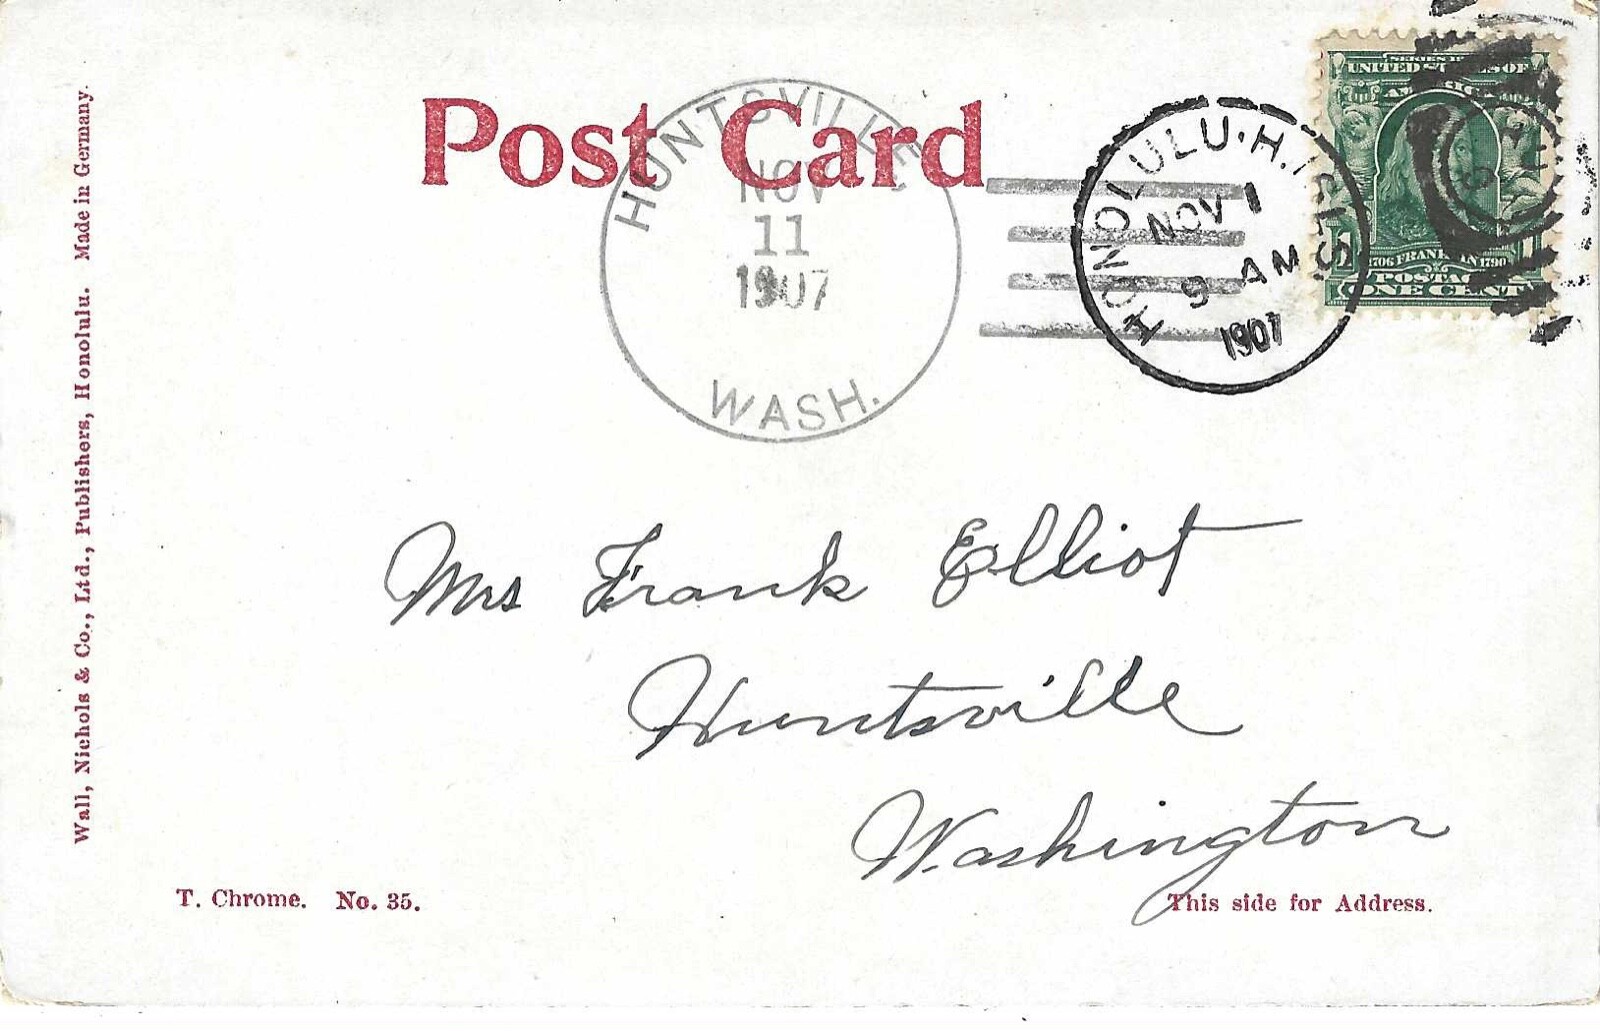 Post Card
HUNTSVILLE,
NOV
11
1907
WASH.
HONOLULU. H. ISLS.
NOV 1
9 AM
1907
UNITED STATES OF
AMERICA
1706 FRANKLIN 1790
POSTAGE
ONE CENT
Wall, Nichols & Co., Ltd., Publishers, Honolulu. Made in Germany.
Mrs Frank Elliot
Huntsville
Washington
T. Chrome. No. 35.
This side for Address.